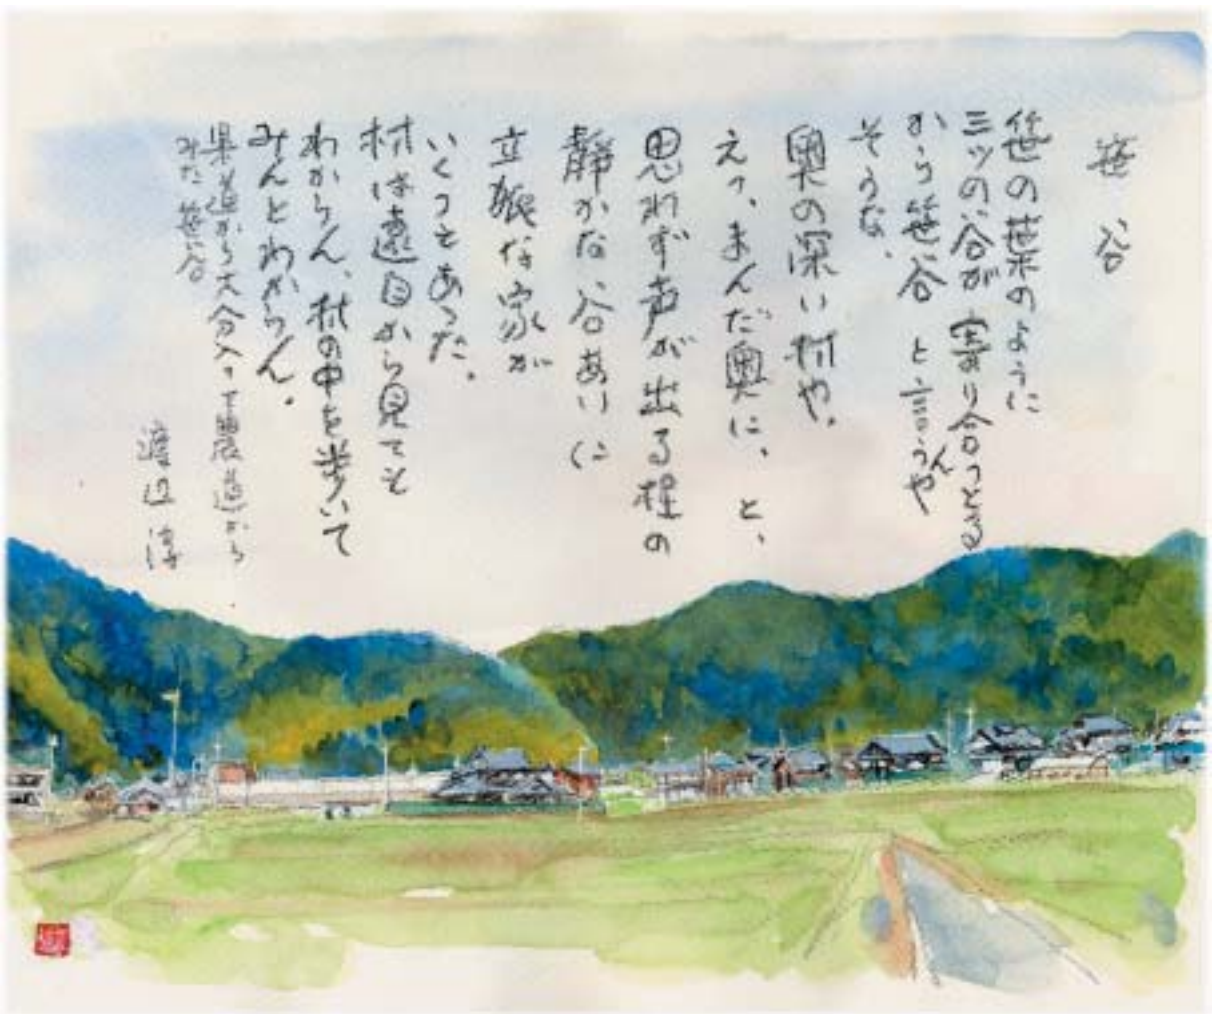 笹谷
笹の葉のように
三ッの谷が寄り合つとる
から笹谷と言うんや
そうな、
奥の深い村や。
えっ、まんだ奥に、と、
思わず声が出る程の
静かな谷あいに
立派な家が
いくつもあった。
村は遠目から見ても
わからん、村の中を歩いて
みんとわからん。
県道から大分入って農道から
みた笹谷
渡辺淳